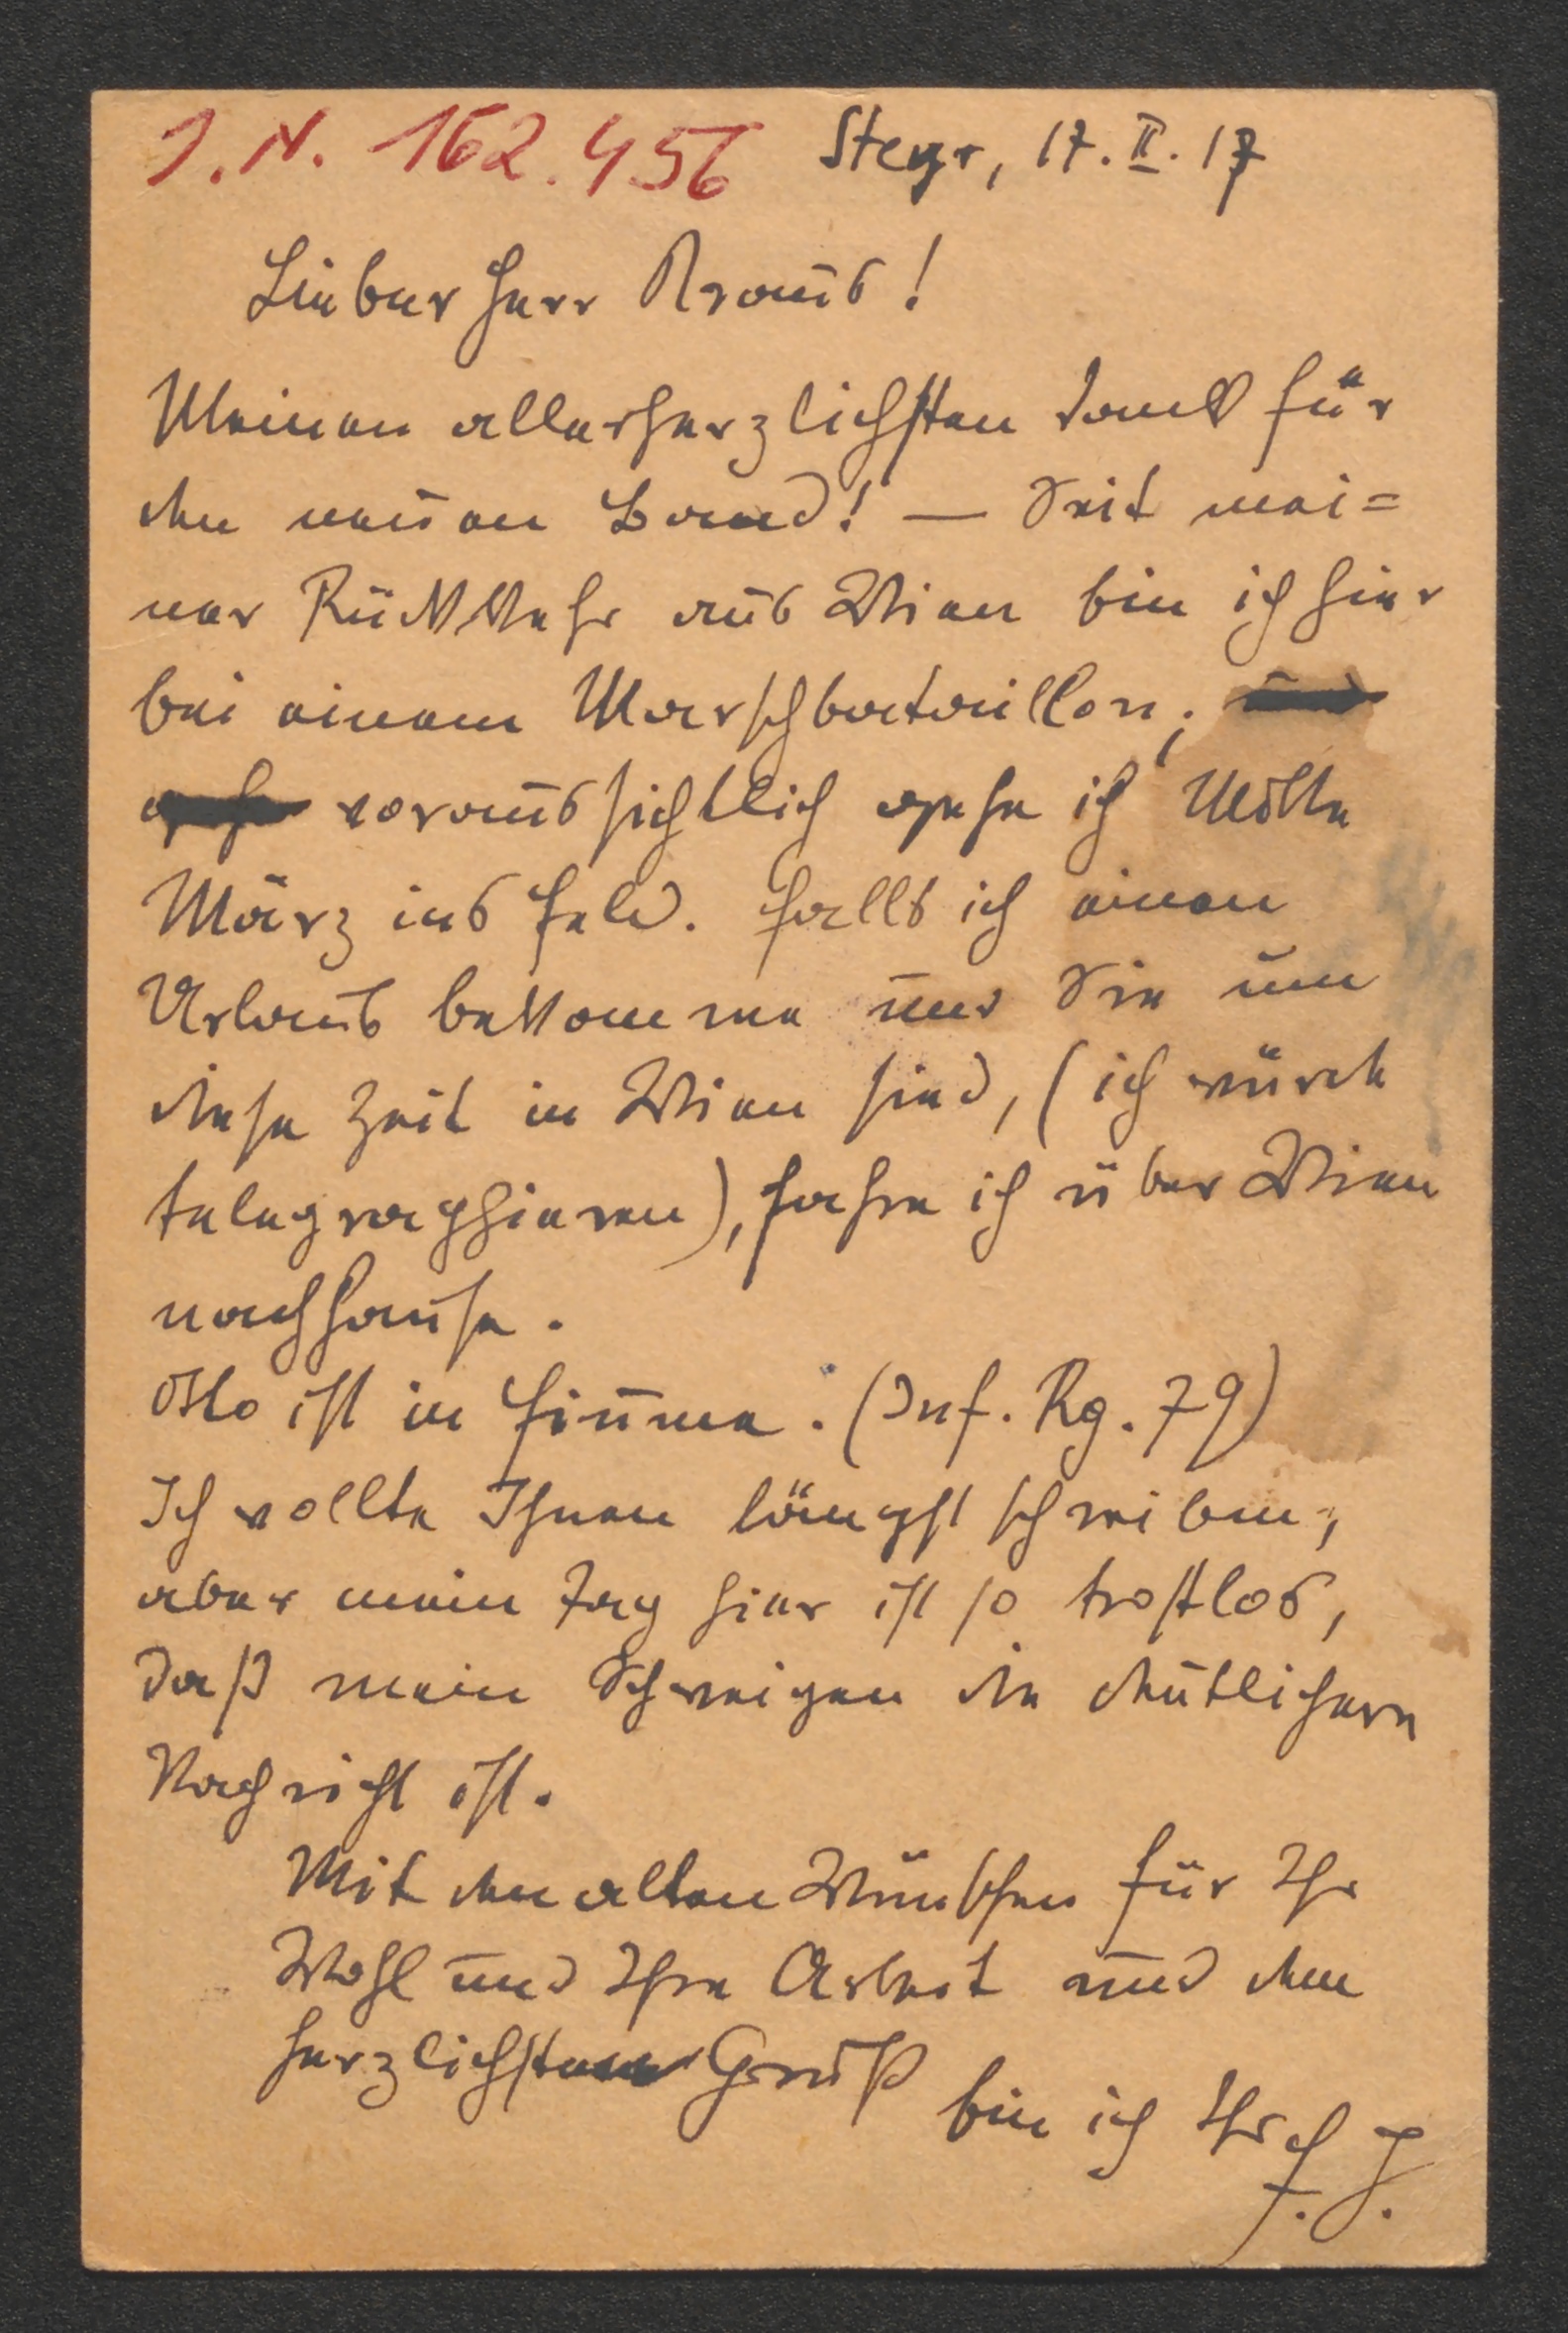 I.N. 162.456 Steyr, 17.II.17
Lieber Herr Kraus!
Meinen allerherzlichsten Dank für
den neuen Band! — Seit mei=
ner Rückkehr aus Wien bin ich hier
bei einem Marschbataillon; und
gehe voraussichtlich gehe ich Mitte
März ins Feld. Falls ich einen
Urlaub bekomme und Sie um
diese Zeit in Wien sind, (ich würde
telegraphieren), fahre ich über Wien
nachhause.
Otto ist in Fiume. (Inf. Rg. 79)
Ich wollte Ihnen längst schreiben,
aber mein Tag hier ist so trostlos,
daß mein Schweigen die deutlichere
Nachricht ist.
Mit den alten Wünschen für Ihr
Wohl und Ihre Arbeit und dem
herzlichsten Gruß
bin ich Ihr